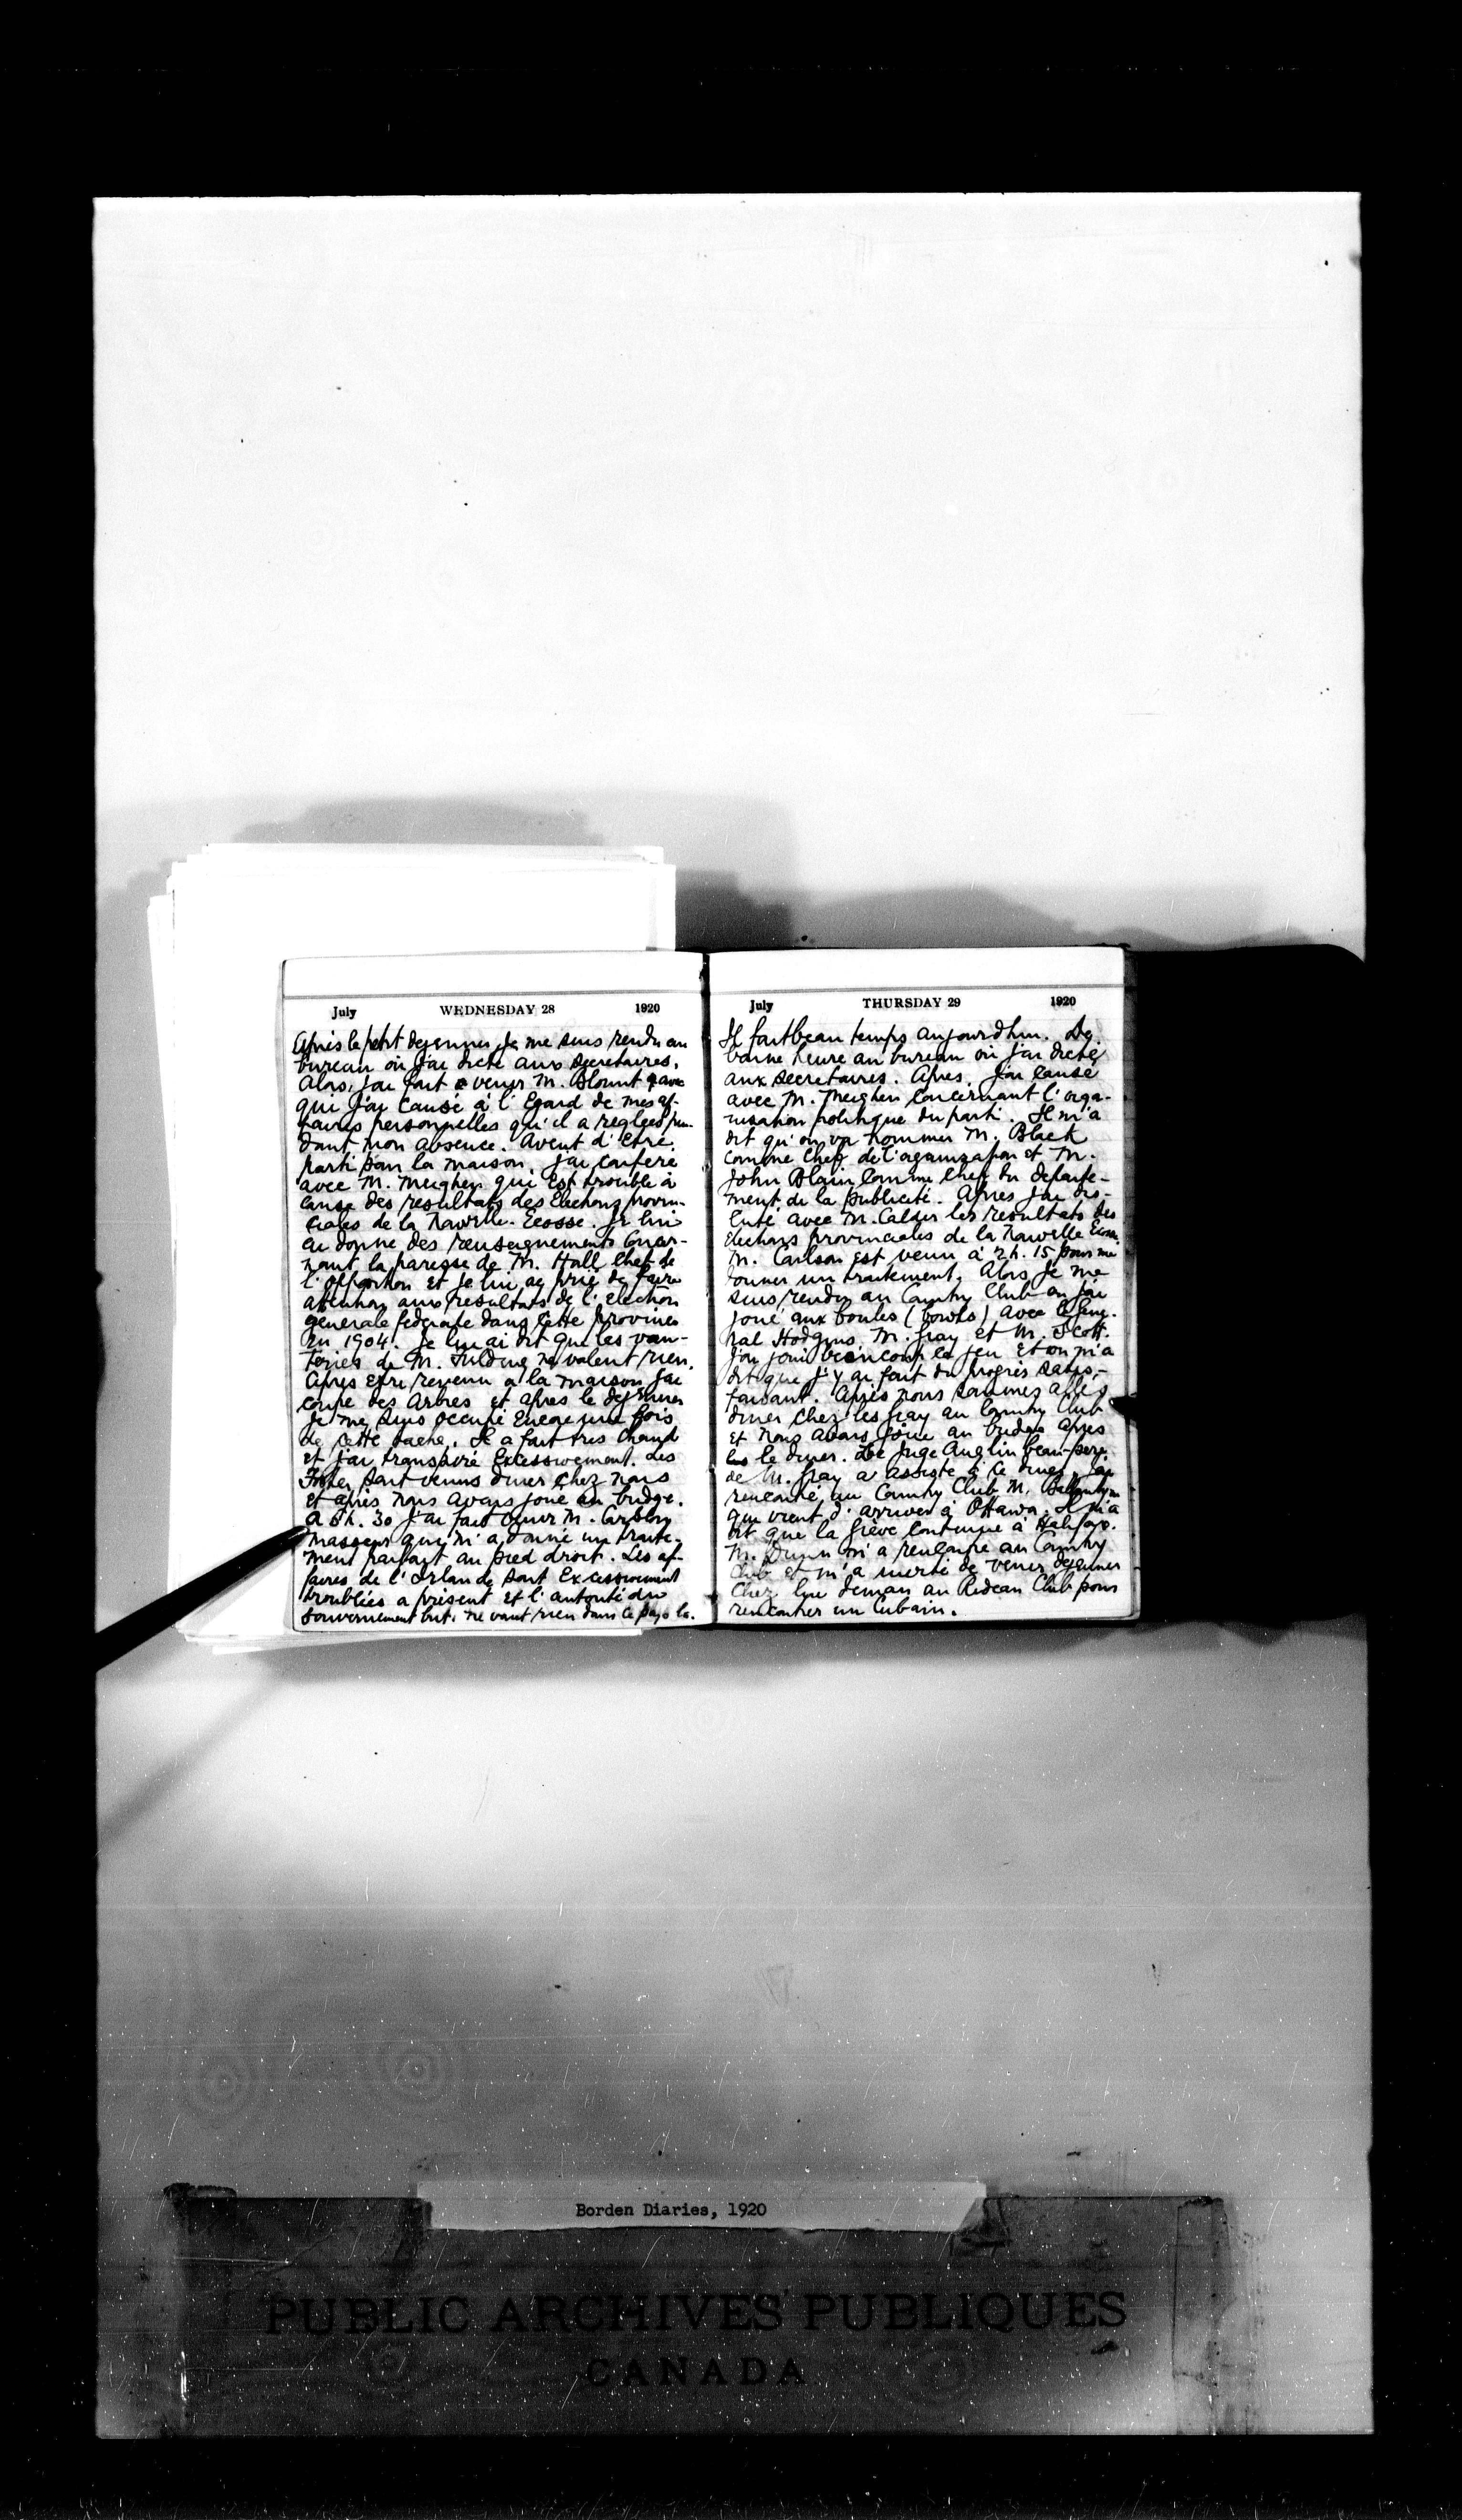 July WEDNESDAY 28 1920
Après le petit dejeuner je me suis rendu au
bureau où j'ai dicté aux secretaires.
Alors, j'ai fait venir M. Blount avec
qui j'ai causé à l'egard de mes af-
faires personnelles qu'il a reglées pen-
dant mon absence. Avant d'etre
parti pour la maison, j'ai conferé
avec M. Meighen qui est trouble à
cause des resultats des Elections provin-
ciales de la Nouvelle-Ecosse. Je lui
ai donné des renseignements concer-
nant la paresse de M. Hall chef de
l'opposition et je lui ai prié de faire
attention aux resultats de l'election
generale federale dans cette province
en 1904. Je lui ai dit que les van-
teries de M. Fielding ne valent rien.
Apres etre revenu a la maison j'ai
coupé des arbres et apres le dejeuner
je me suis occupé encore une fois
de cette tache. Il a fait tres chaud
et j'ai transpiré excessivement. Les
Foster sont venus diner chez nous
et après nous avons joué au bridge.
A 6h. 30 j'ai fait venir M. Carlson
masseur qui m'a donné un traite-
ment parfait au pied droit. Les af-
faires de l'Irlande sont excessivement
troublées a present et l'autorité du
gouvernement brit. ne vaut rien dans ce pays la.
July THURSDAY 29 1920
Il fait beau temps aujourdhui. De
bonne heure au bureau où j'ai dicté
aux secretaires. Apres, j'ai causé
avec M. Meighen concernant l'orga-
nisation politique du parti. Il m'a
dit qu'on va nommer M. Black
comme chef de l'organization et M.
John Blain comme chef du departe-
ment de la publicité. Apres j'ai dis-
cuté avec M. Calder les resultats des
elections provinciales de la Nouvelle Ecosse.
M. Carlson est venu à 2h. 15 pour me
donner un traitement. Alors je me
suis rendu au Country Club où j'ai
joué aux boules (bowls) avec le gene-
ral Hodgins M. Gray et M. Scott.
J'ai joui beaucoup le jeu et on m'a
dit que j'y ai fait du progrès satis-
faisant. Après nous sommes allés
diner chez les Gray au Country Club
et nous avons joué au bridge apres
le diner. Le juge Anglin beau-pere
de M. Gray a assisté à ce diner. J'ai
rencontré au Country Club M. Ballantyne
qui vient d'arriver à Ottawa. Il m'a
dit que la grève continue à Halifax.
M. Dunn m'a rencontré au Country
Club et m'a invité de venir dejeuner
chez lui demain au Rideau Club pour
rencontrer un Cubain.
Borden Diaries, 1920
PUBLIC ARCHIVES PUBLIQUES
CANADA